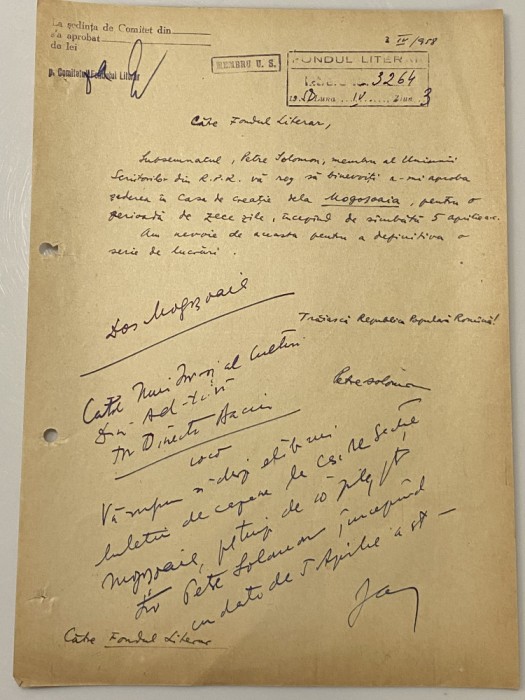 La ședința de Comitet din
s'a aprobat
de lei
p. Comitetul Fondului Literar
MEMBRU U. S.
2 IV/958
FONDUL LITERAR
3264
IV 3
Către Fondul Literar,
Subsemnatul, Petre Solomon, membru al Uniunii
Scriitorilor din R.P.R. vă rog să binevoiți a-mi aproba
șederea în Casa de creație dela Mogoșoaia, pentru o
perioadă de zece zile, începînd de sîmbătă 5 aprilie a.c.
Am nevoie de aceasta pentru a definitiva o
serie de lucrări.
Trăiască Republica Populară Romînă!
Petre Solomon
Dos Mogoșoaia
Către al Culturii
Loco
Vă rugăm să
buletin de cazare la
Mogoșoaia, de 10 zile
Petre Solomon, începînd
cu data de 5 Aprilie a
Către Fondul Literar